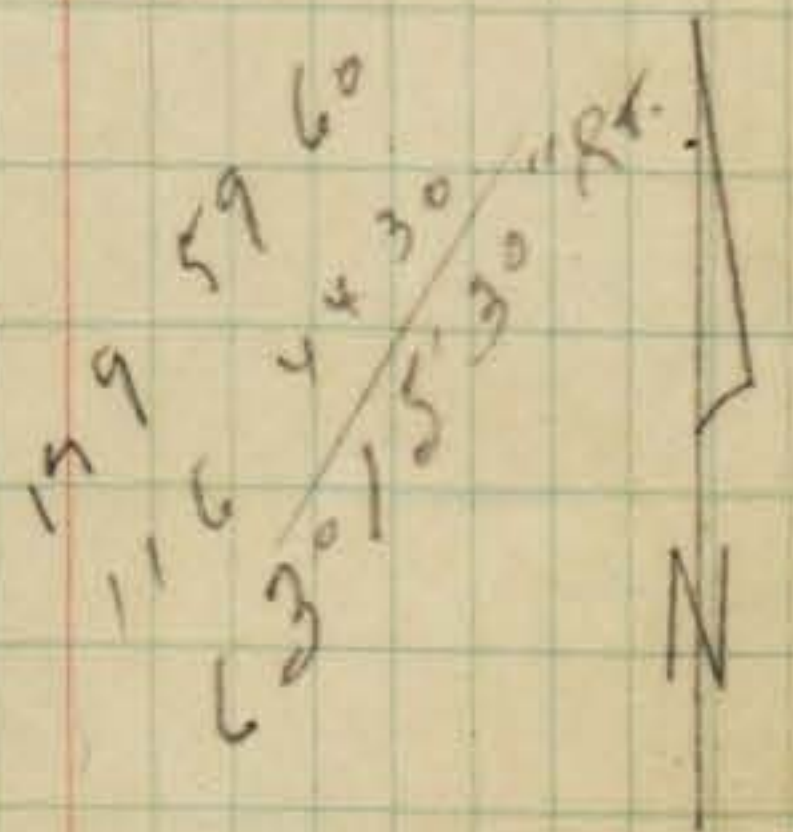 179 59 60
116 44 30
63° 15' 30" Rt.
N